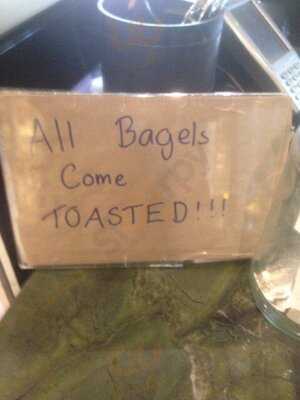 All Bagels
Come
TOASTED!!!